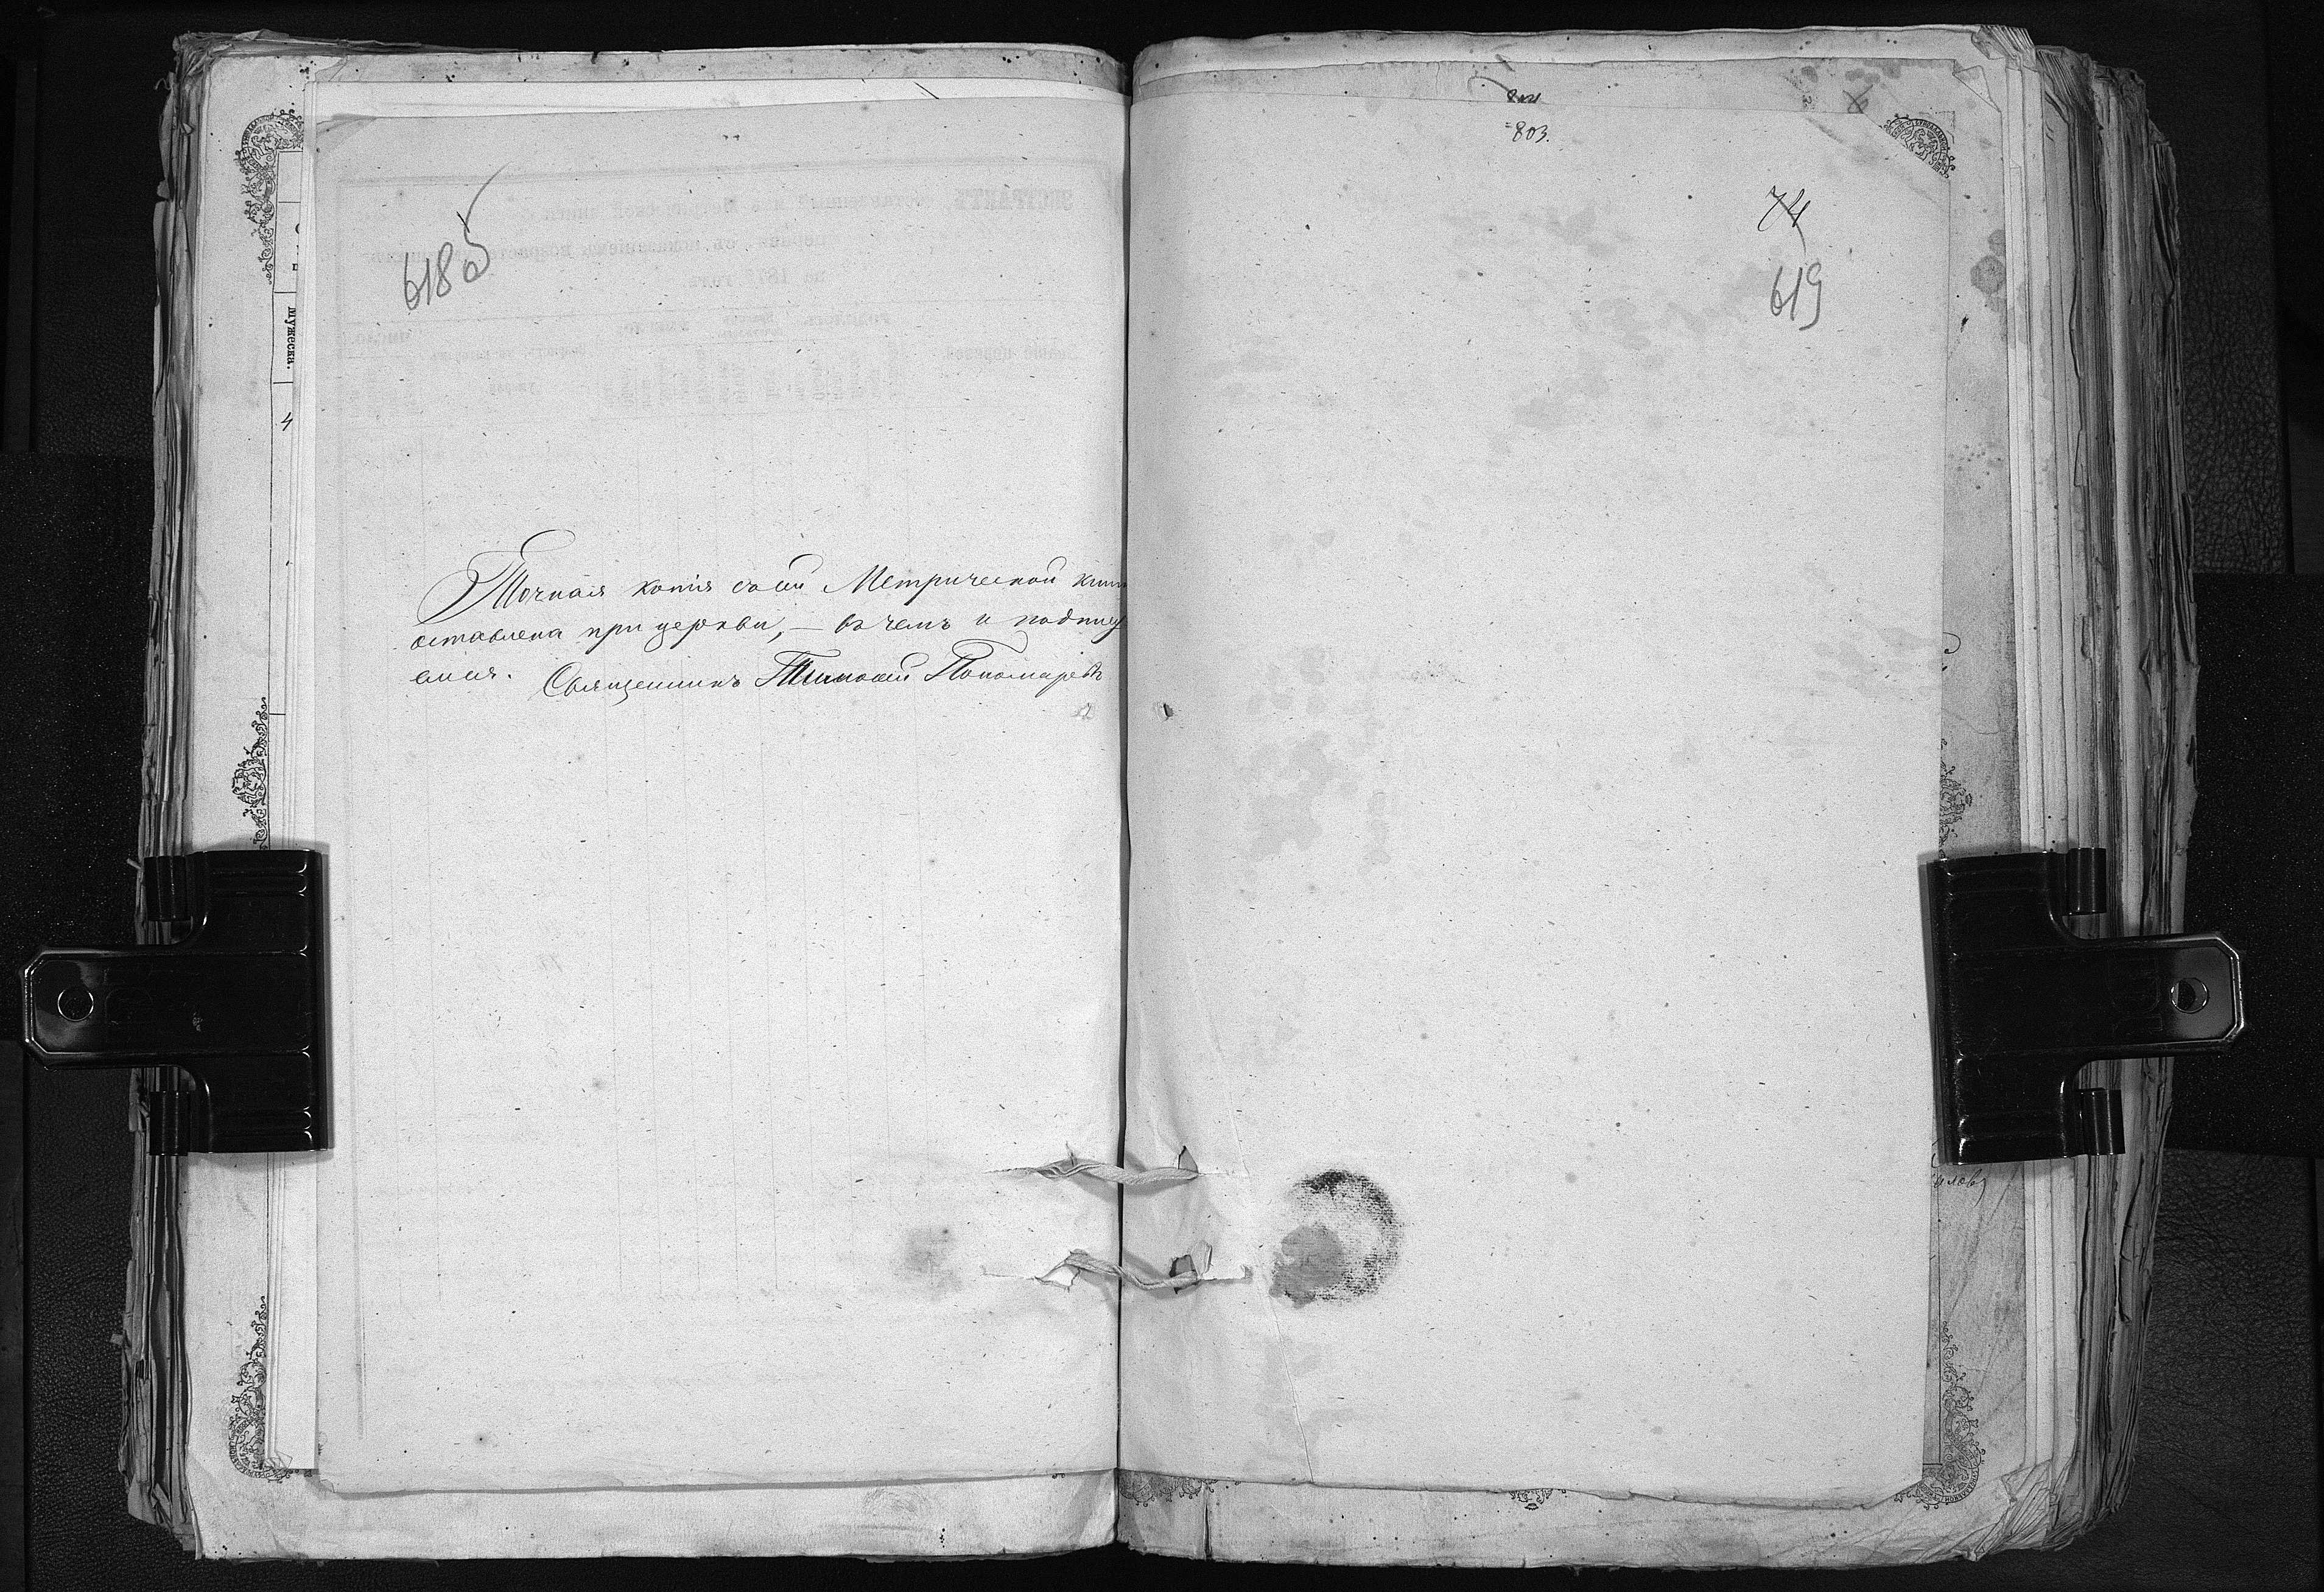 618об
Точная копія съ сей Метрической книг
оставлена при церкви, — въ чемъ и подпису
емся. Священникъ Тимофей Пономаревъ
803.
74
619
мужески.
4